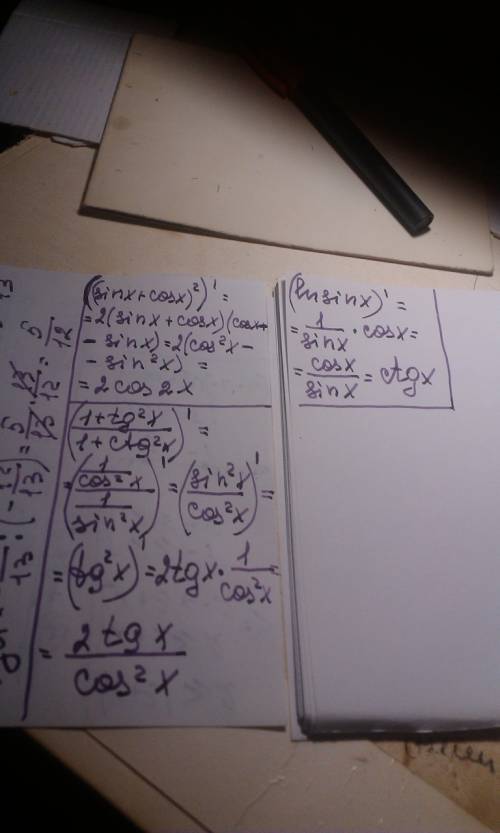 ((sinx+cosx)²)' =
=2(sinx+cosx)(cosx-
-sinx)=2(cos²x-
-sin²x) =
= 2cos2x
((1+tg²x)/(1+ctg²x))' =
=((1/cos²x)/(1/sin²x))' = (sin²x/cos²x)' =
=(tg²x)'=2tgx·1/cos²x=
= 2tgx/cos²x
(lnsinx)' =
= 1/sinx · cosx=
= cosx/sinx = ctgx